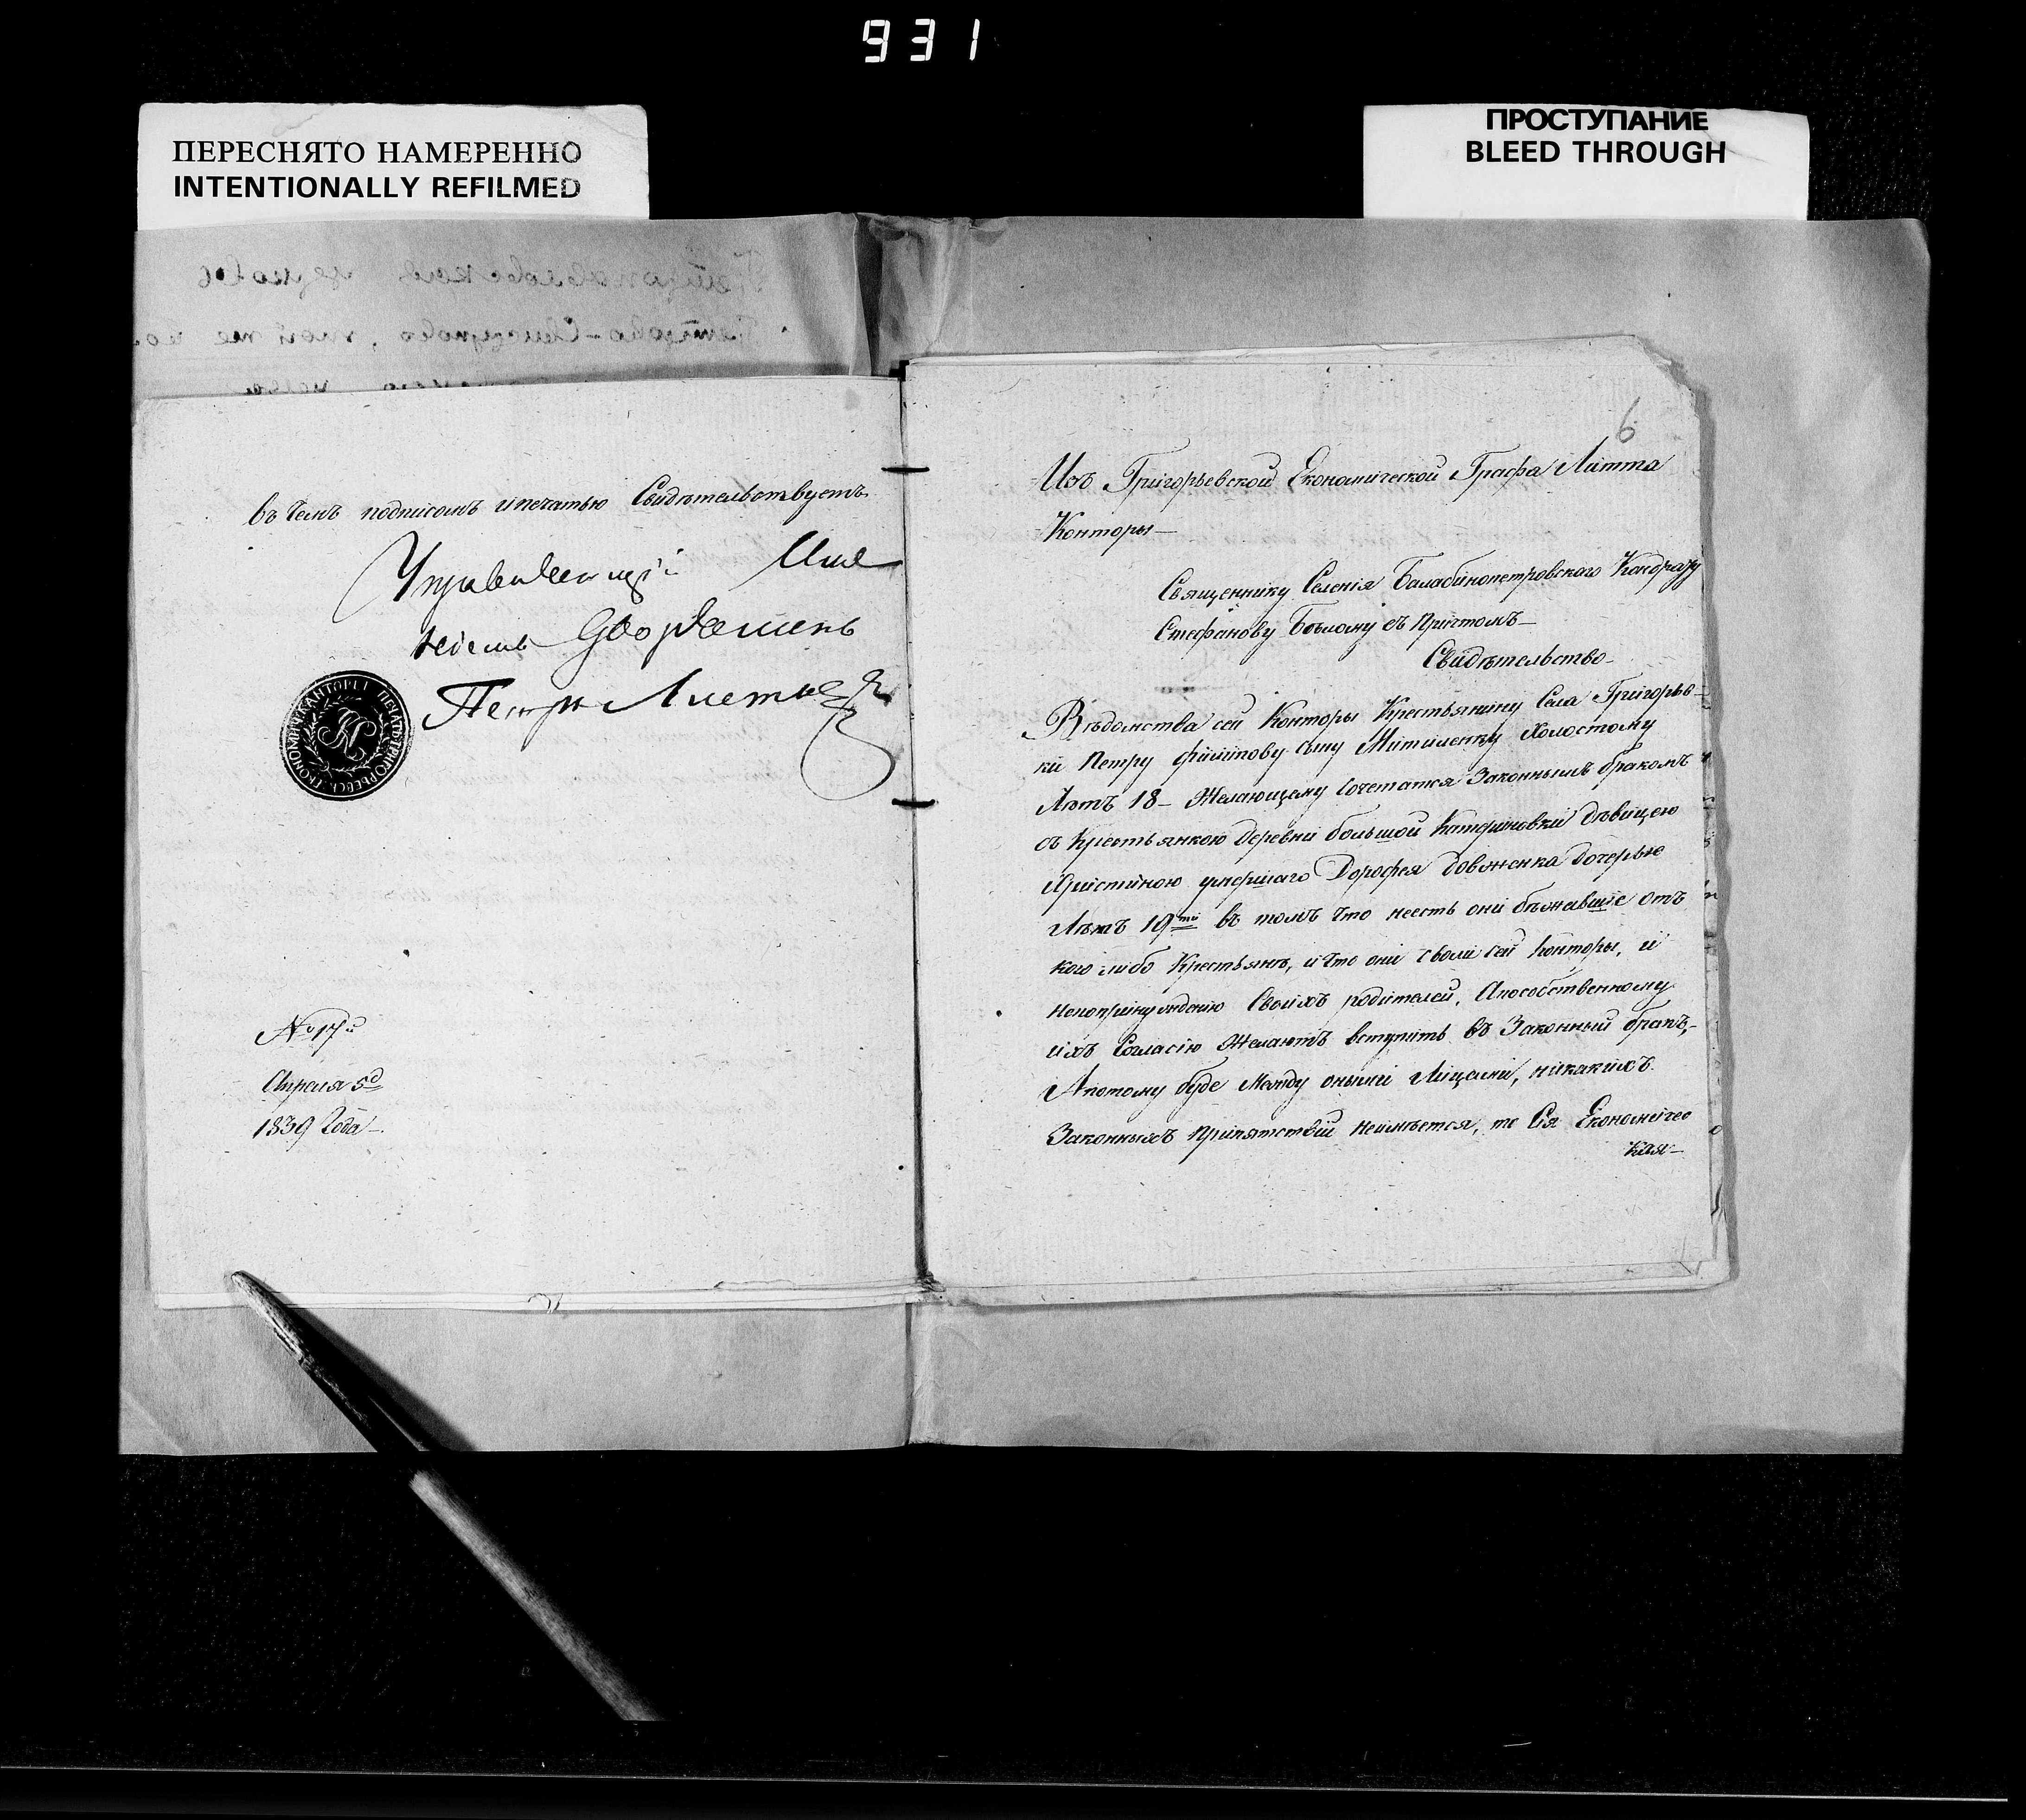 931
ПЕРЕСНЯТО НАМЕРЕННО
INTENTIONALLY REFILMED
ПРОСТУПАНИЕ
BLEED THROUGH
въ чемъ подписомъ ипечатью Свидѣтельствуетъ
Управляющій Име
ніемъ Дворянинъ
Петръ
№ 17й
Апреля 5д
1839 Года
6
Изъ Григорьевской Економической Графа Литта
Конторы
Священнику Селенія Балабинопетровского Кондрату
Стефанову Бѣлому съ Причтомъ
Свидѣтельство
Вѣдомства сей Конторы Крестьянину Села Григорьв-
ки Петру Филипову сыну холостому
Лѣтъ 18 – Желающему Сочетатся Законнымъ бракомъ
съ Крестьянкою деревни большой Катериновки дѣвицею
Христиною умершаго Дорофея довженка дочерью
Лѣтъ 19ти въ томъ что неесть они бѣжавшіе отъ
кого либо Крестьянъ, и что они сей Конторы, и
непопринужденію Своихъ родителей, Апособственному
ихъ Согласію Желаютъ вступить въ Законный бракъ,
Апотому буде Между оными Лицами, никакихъ
Законныхъ припятствій неимѣется, то Ся Економичес
кая